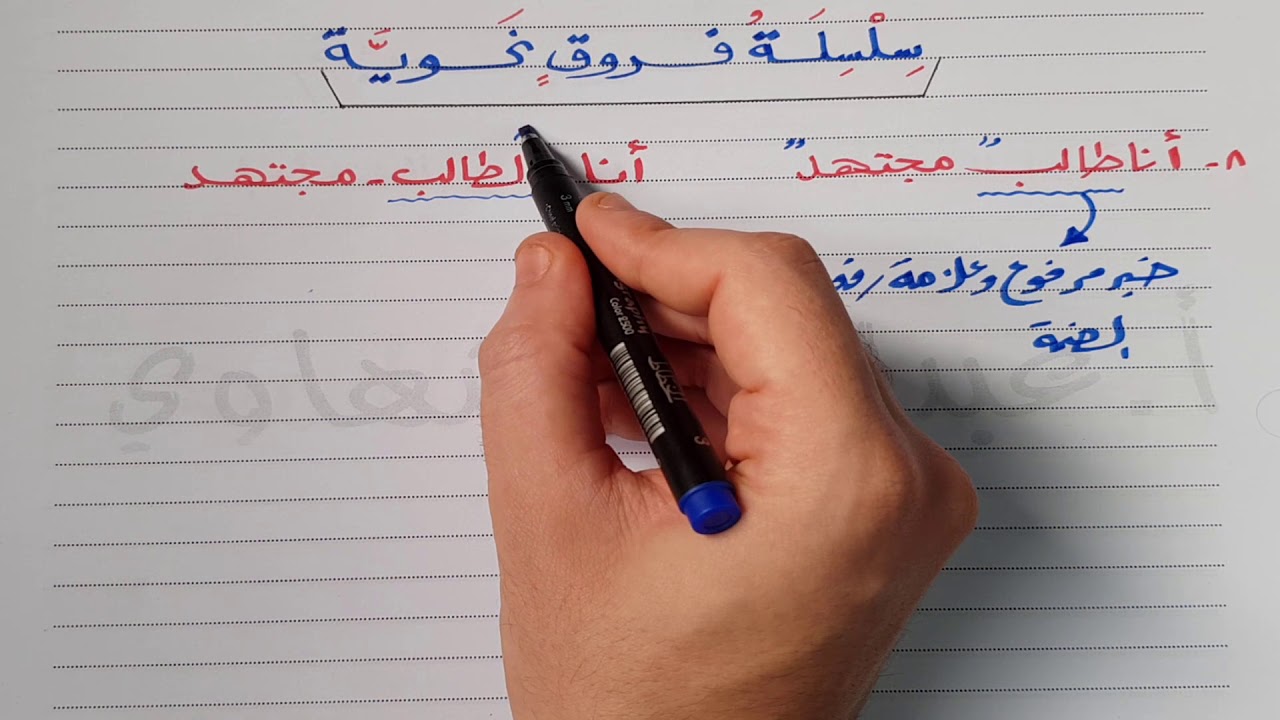 سِلْسِلَةُ فروقٍ نَحويَّة
٨- أنا طالبٌ مجتهدٌ
أنا الطالب - مجتهد
خبر مرفوع وعلامة رفعه
الضمة